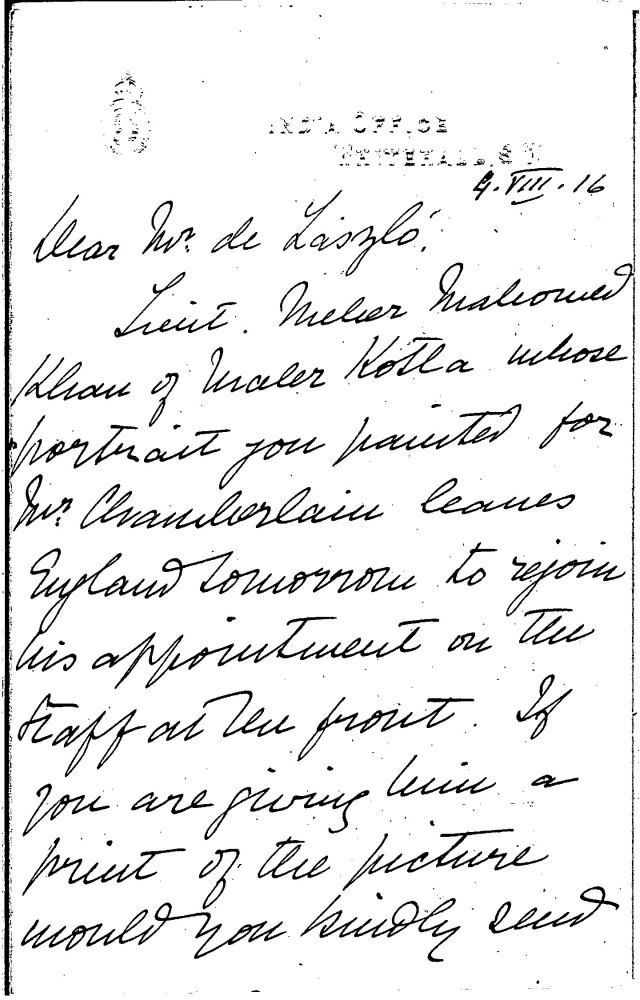 INDIA OFFICE
WHITEHALL, S.W.
9.VIII.16
Dear Mr. de László,
Lieut. Meher Mahomed
Khan of Maler Kotla whose
portrait you painted for
Mr. Chamberlain leaves
England tomorrow to rejoin
his appointment on the
Staff at the front. If
you are giving him a
print of the picture
would you kindly send